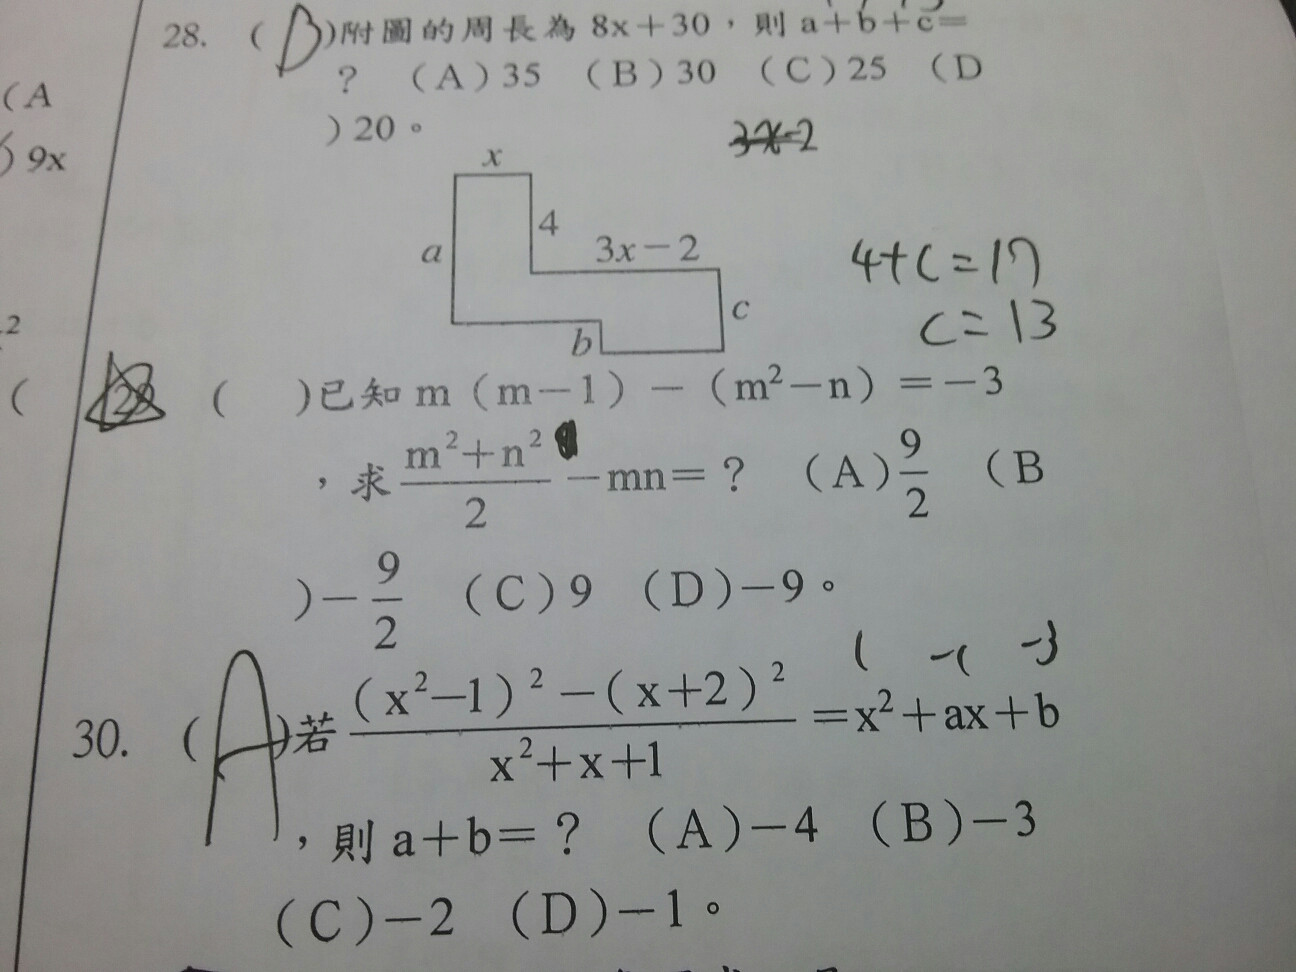 28. ( B )附圖的周長為 8x+30，則 a+b+c=
? (A)35 (B)30 (C)25 (D
)20。
(A
) 9x
3x-2
x
4
3x-2
a
c
b
4+c=17
c=13
2
(
29 ( )已知 m(m-1)-(m²-n)=-3
，求 (m²+n²)/2 -mn=? (A) 9/2 (B
)- 9/2 (C)9 (D)-9。
1 -1 -3
30. ( A )若 ((x²-1)²-(x+2)²)/(x²+x+1) =x²+ax+b
，則 a+b=? (A)-4 (B)-3
(C)-2 (D)-1。